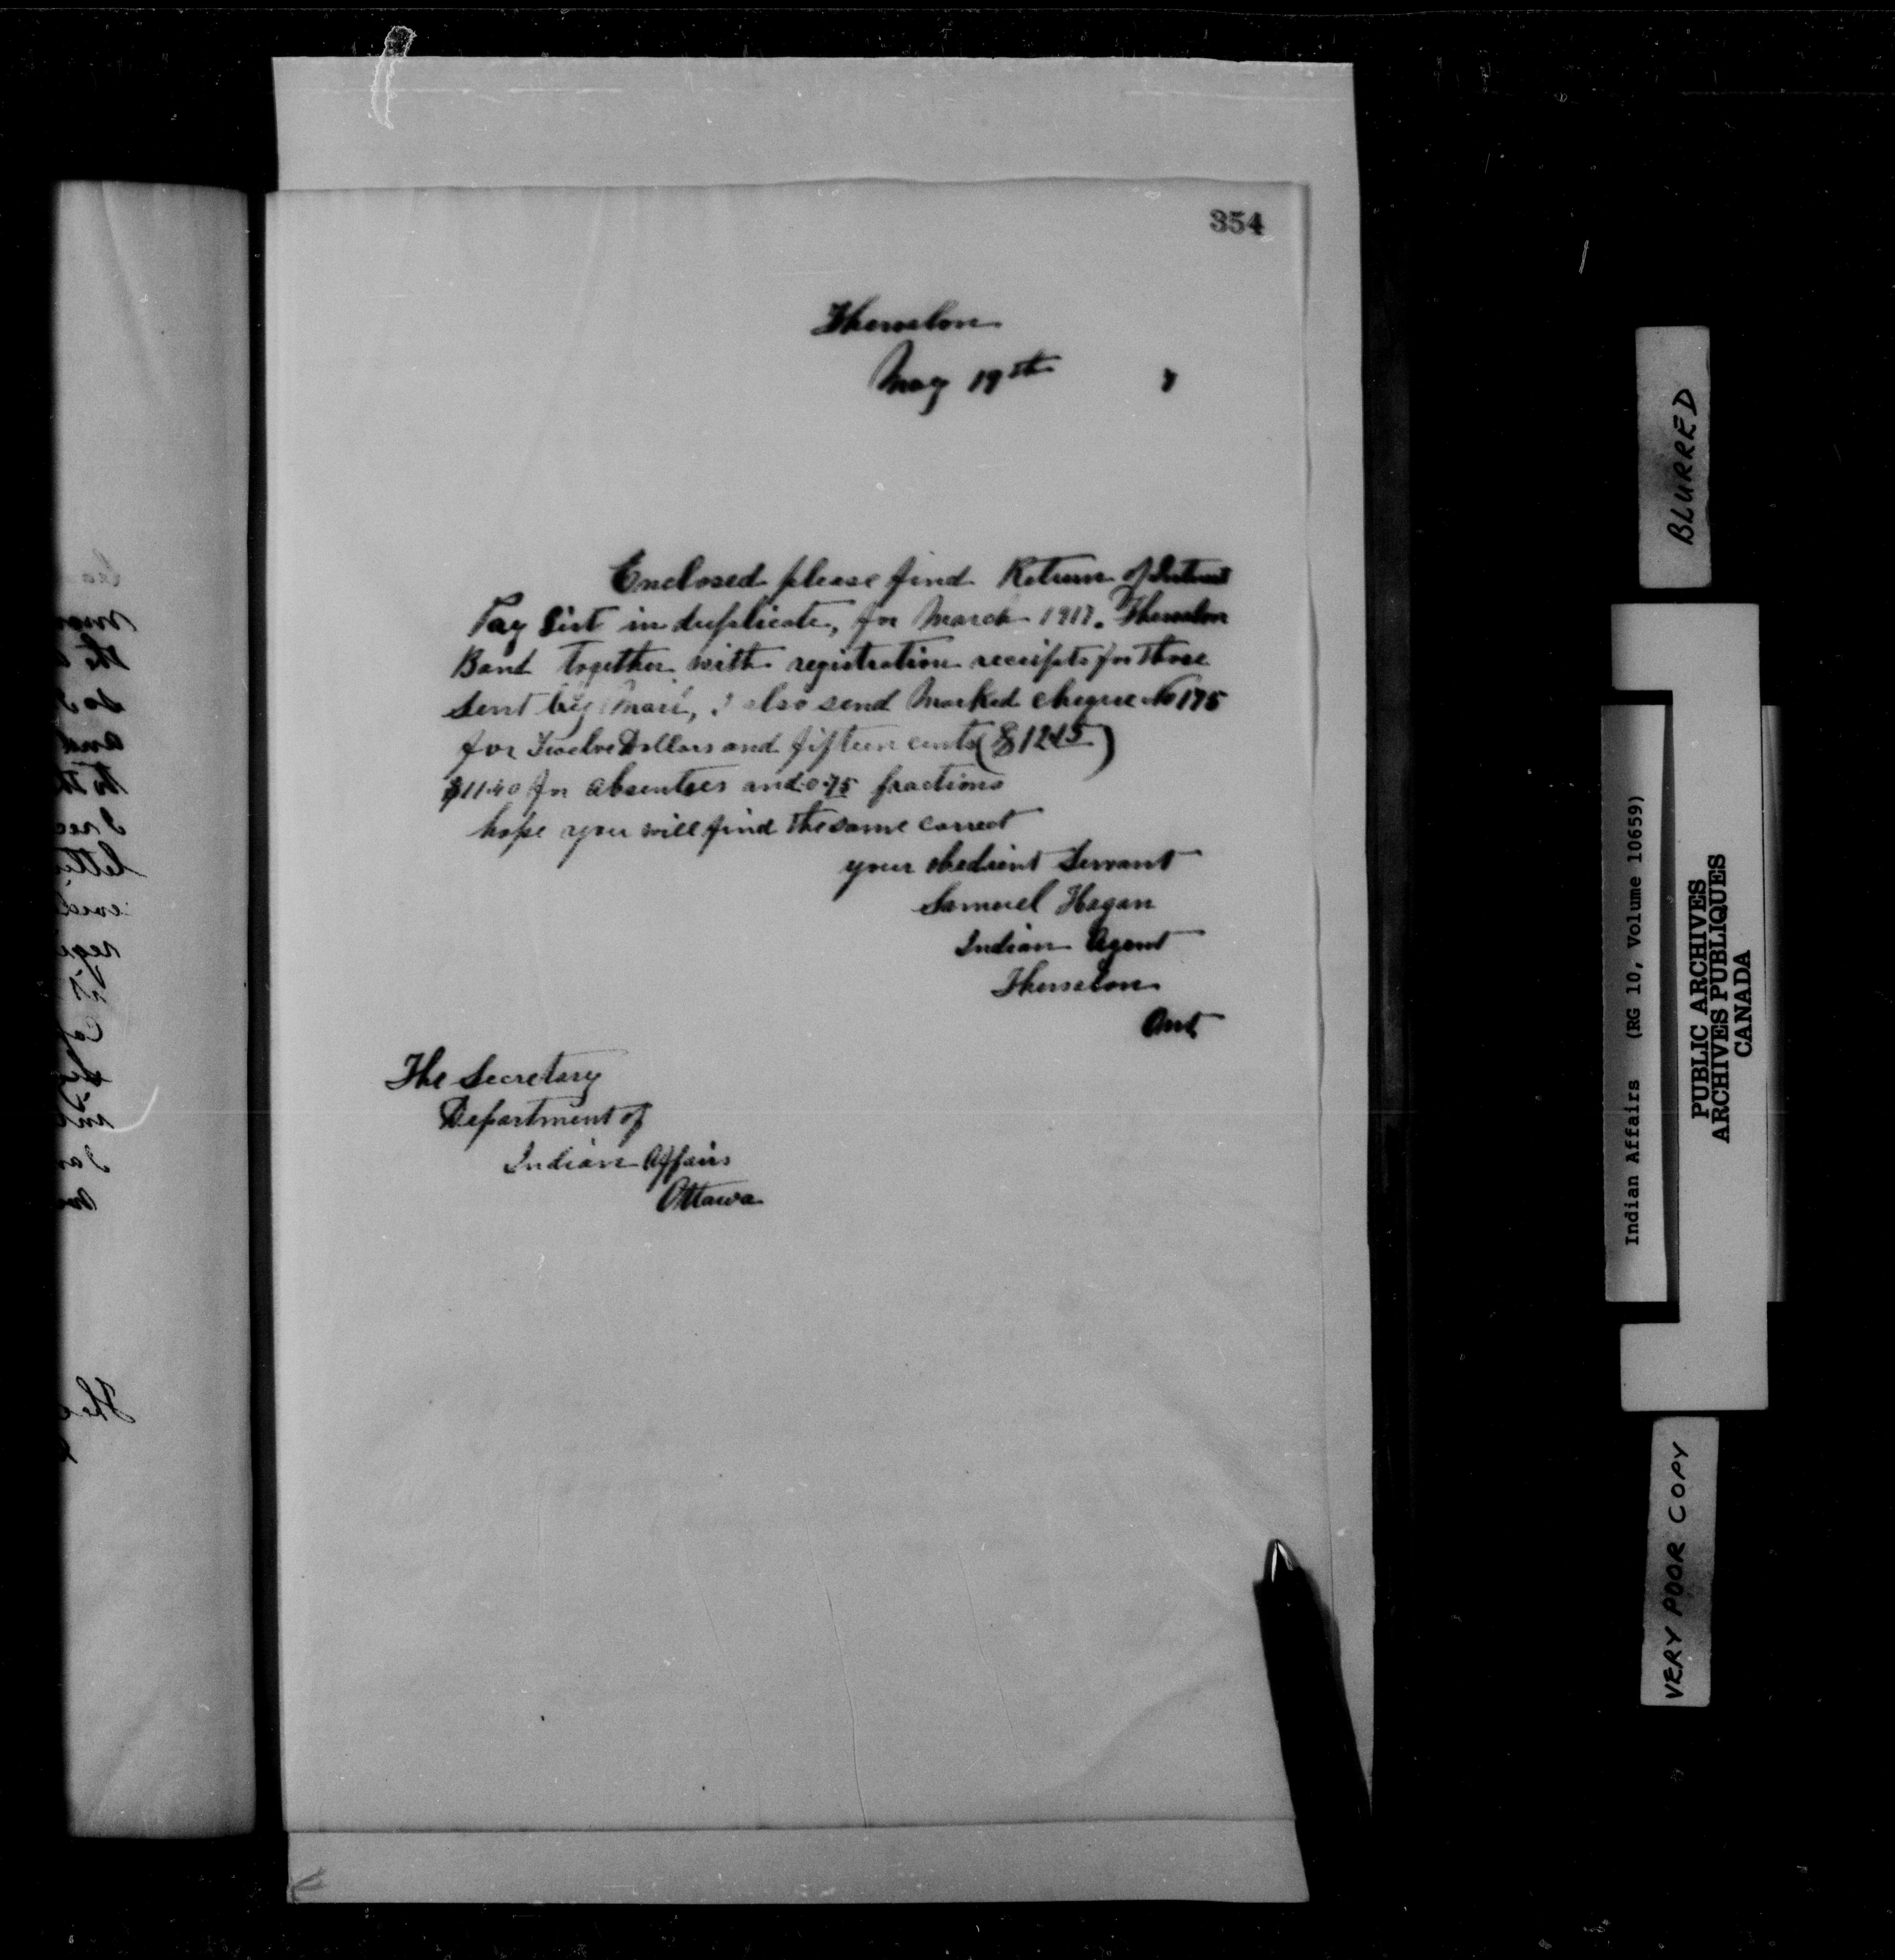 354
Thessalon
May 19th 7
Enclosed please find Return of Interest
Pay List in duplicate, for March 1917. Thessalon
Band together with registration receipts for those
sent by Mail, I also send Marked cheque No 175
for Twelve Dollars and fifteen cents ($12.15)
$11.40 for absentees and 0.75 fractions
hope you will find the same correct
your obedient Servant
Samuel Hagan
Indian Agent
Thessalon
Ont
The Secretary
Department of
Indian Affairs
Ottawa
BLURRED
Indian Affairs (RG 10, Volume 10659)
PUBLIC ARCHIVES
ARCHIVES PUBLIQUES
CANADA
VERY POOR COPY